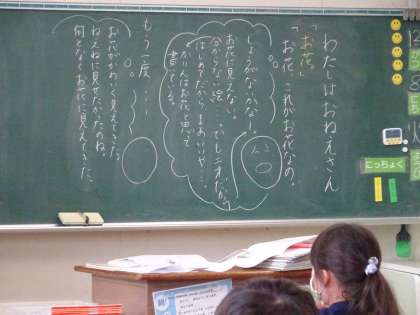 わたしはおねえさん
「お花。」
「お花。これがお花なの。」
しょうがないかな…。
お花に見えない。
分からない絵…。でも二才だから、
はじめてだからまあいいや…。
かりんはお花と思って
書いている。
もう一度…
お花がかわいく見えてきた。
ねえねに見せたかったのね。
何となくお花に見えてきた。
にっちょく